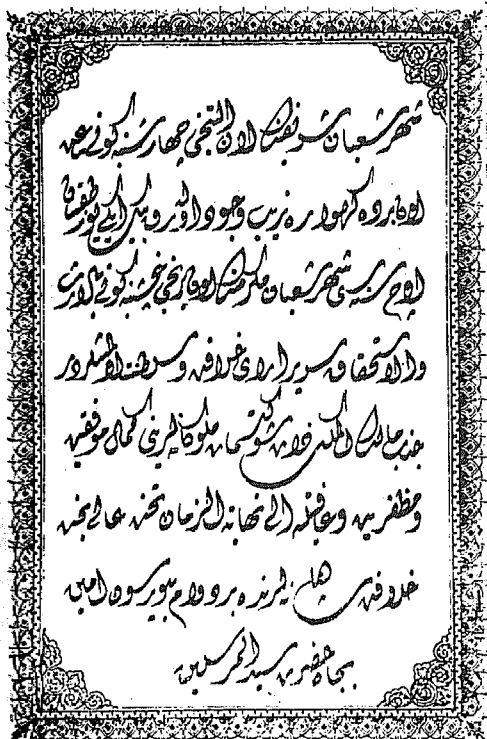 شهر شعبان شریفنك اون التنجی چهارشنبه كونی
اون برده كهواره زیب وجود اولوب بیك ایكیوز طقسان
اوچ سنه سی شهر شعبان مكرمنك اون برنجی پنجشنبه كونی بالارث
والاستحقاق سریر ارای خلافت و سلطنت اولمشلردر
جناب مالك الملك ذات شوكتسمات ملوكانه لرینی كمال موفقیت
و مظفریت و عافیتله الی نهایة الزمان تخت عالی بخت
خلافت شاهانه لرنده بردوام بیورسون امین
بجاه حضرت سید المرسلین